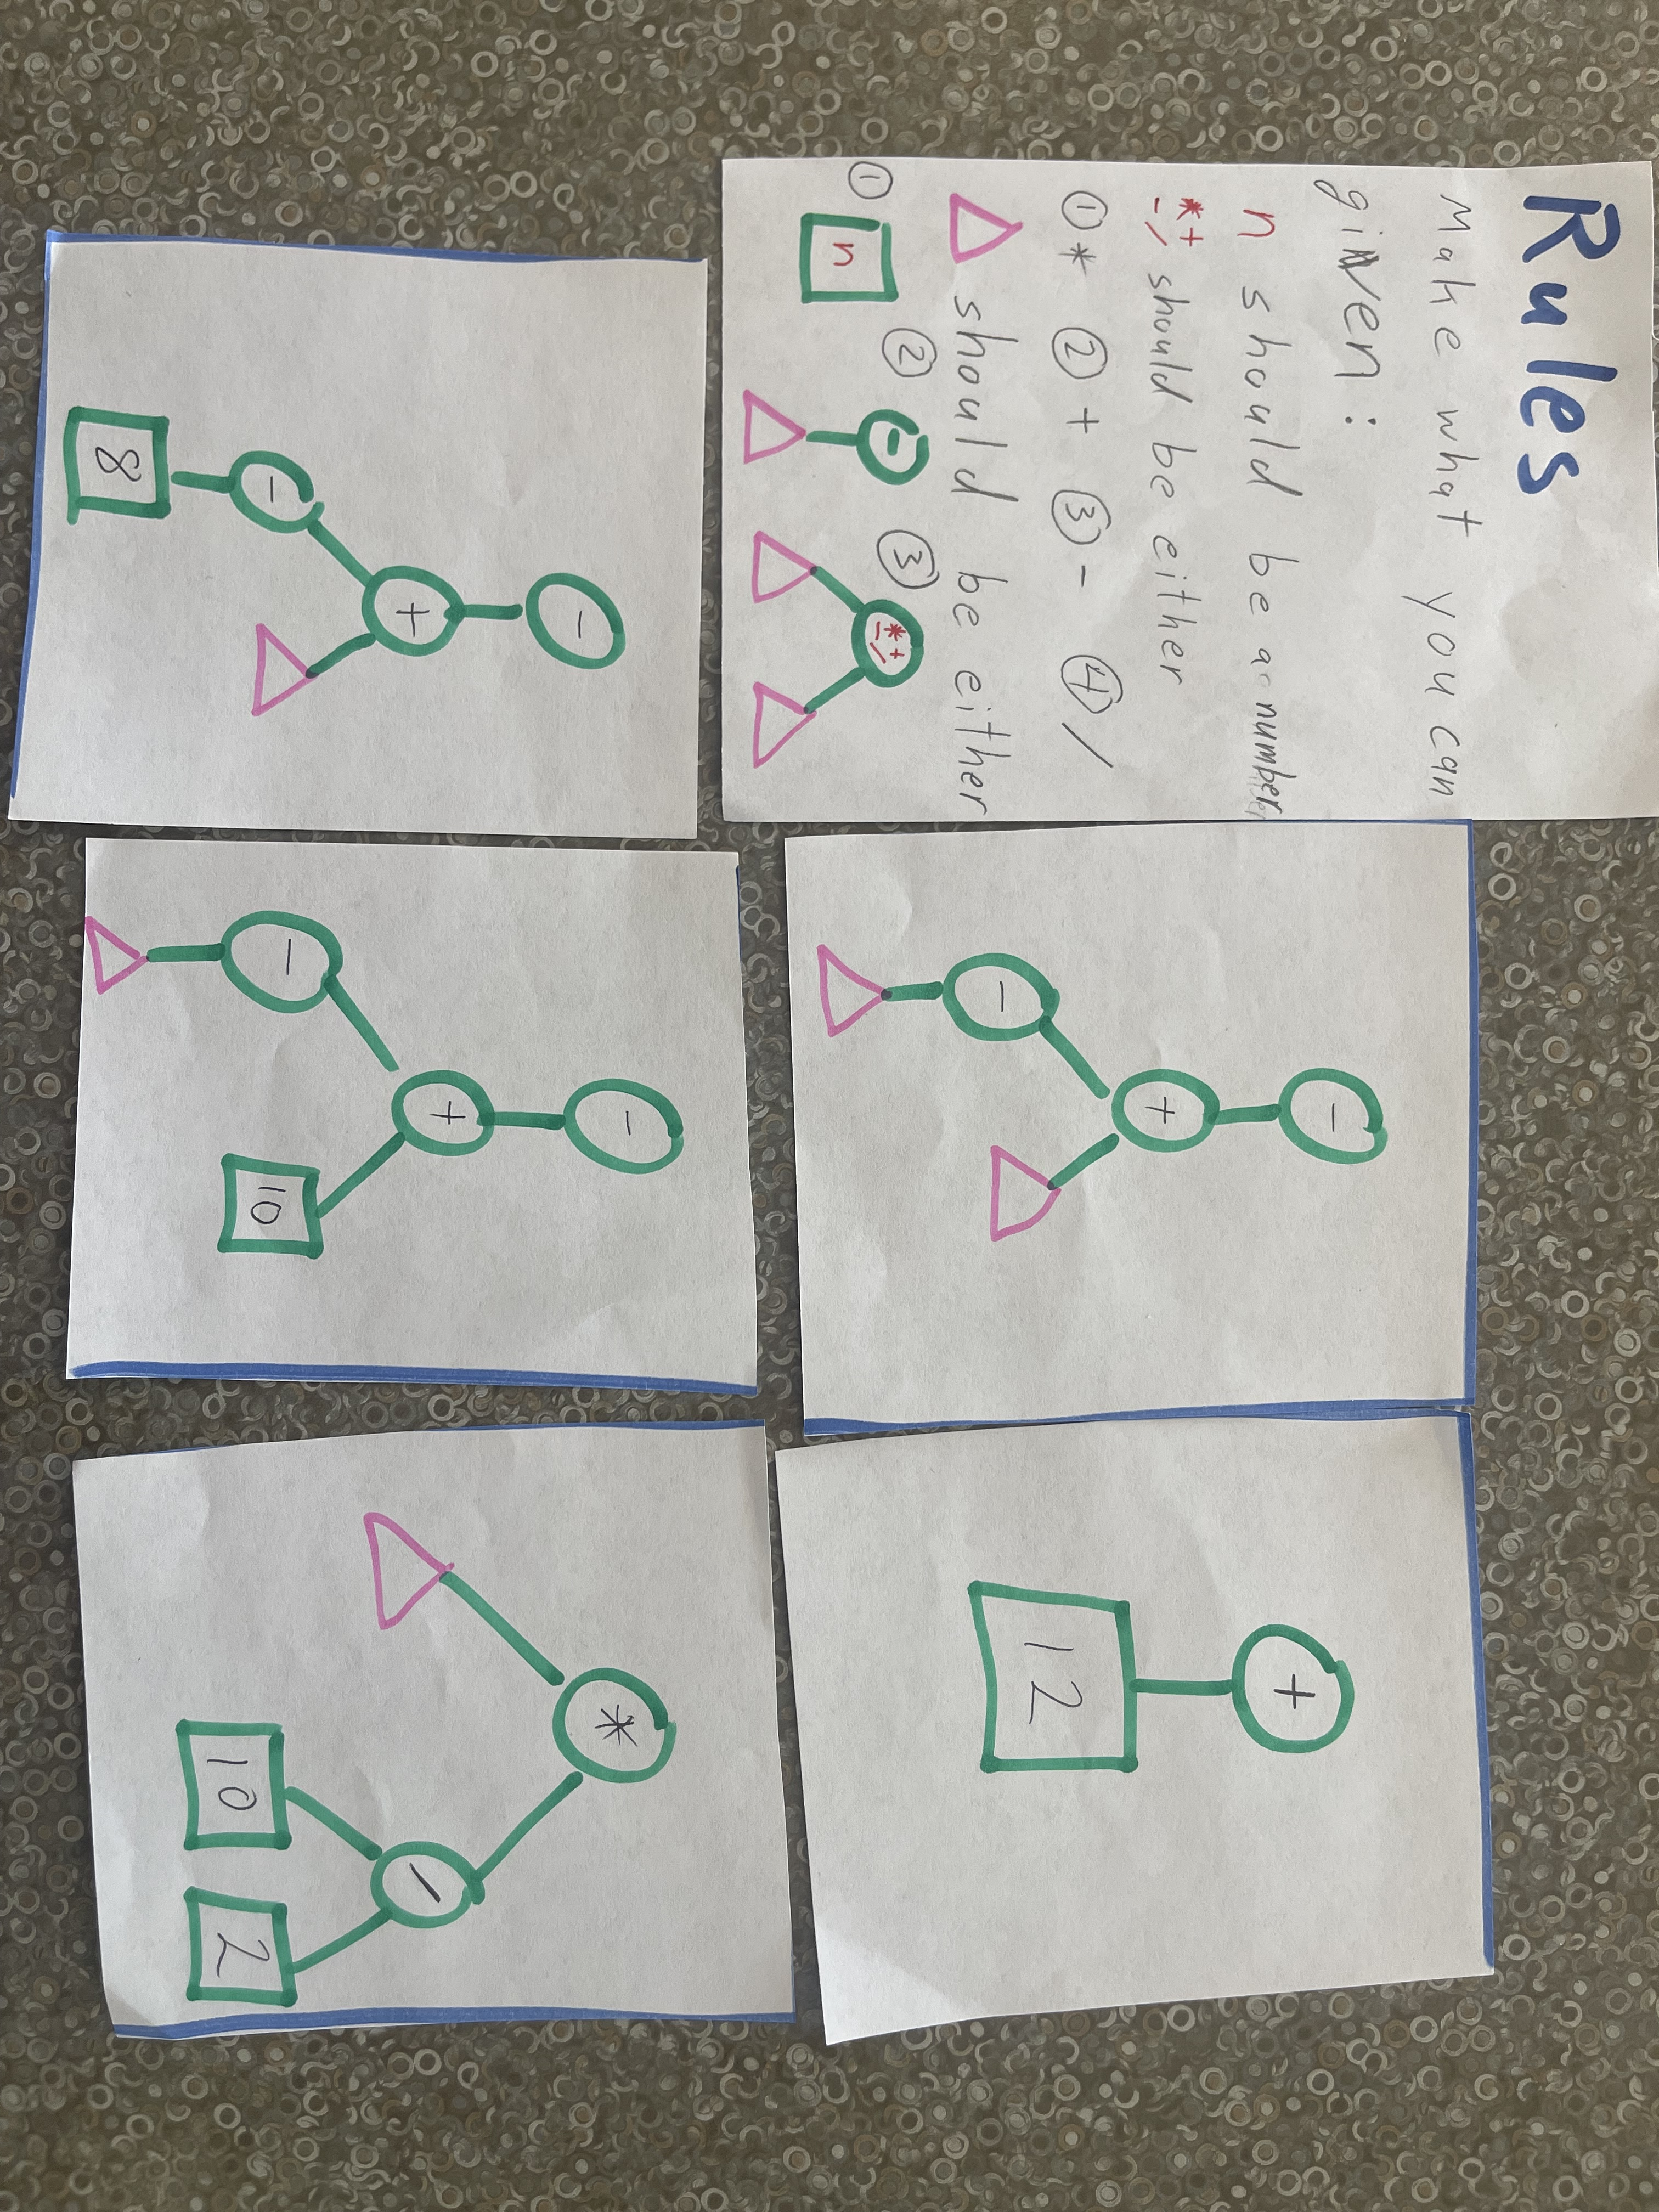 Rules
Make what you can
given:
n should be a number
*+-/ should be either
① * ② + ③ - ④ /
△ should be either
① ② ③
n - *+-/
-
+
-
+
12
-
+
-
8
-
+
- 10
*
/
10 2